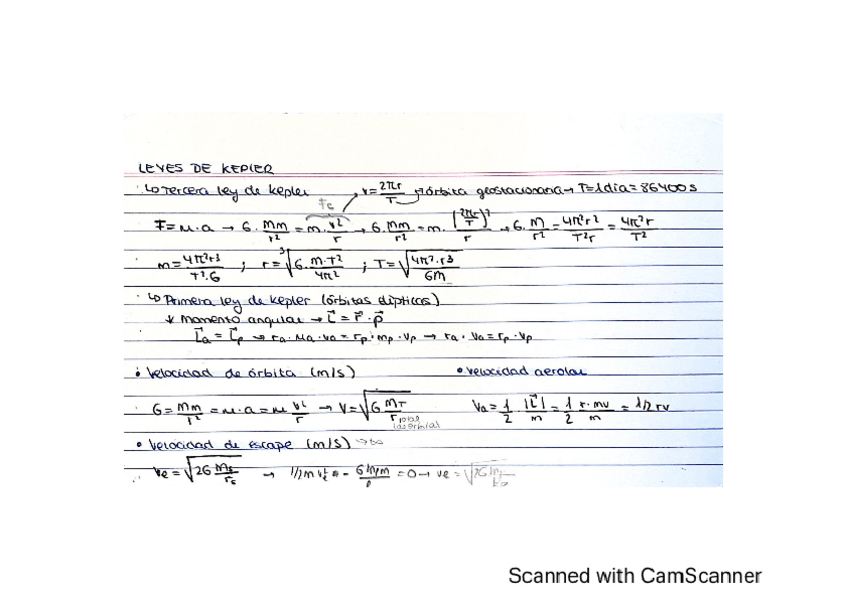 LEYES DE KEPLER
↳ Tercera ley de kepler v = 2πr/T → órbita geostacionaria → T = 1 día = 86400 s
Fc
F = m·a → G·Mm/r² = m·v²/r → G·Mm/r² = m·(2πr/T)²/r → G·M/r² = 4π²r²/T²r = 4π²r/T²
m = 4π²r³/T²·G ; r = ³√(G·m·T²/4π²) ; T = √(4π²·r³/GM)
↳ Primera ley de kepler (órbitas elípticas)
↓ Momento angular → L = r·p
La = Lp → ra·ma·va = rp·mp·vp → ra·va = rp·vp
• Velocidad de órbita (m/s) • velocidad aerolar
G = Mm/r² = m·a = m v²/r → v = √(G MT/r) Va = 1/2 |L|/m = 1/2 r·mv/m = 1/2 rv
• Velocidad de escape (m/s) → ∞
ve = √(2G Ms/rs) → 1/2 m
Scanned with CamScanner